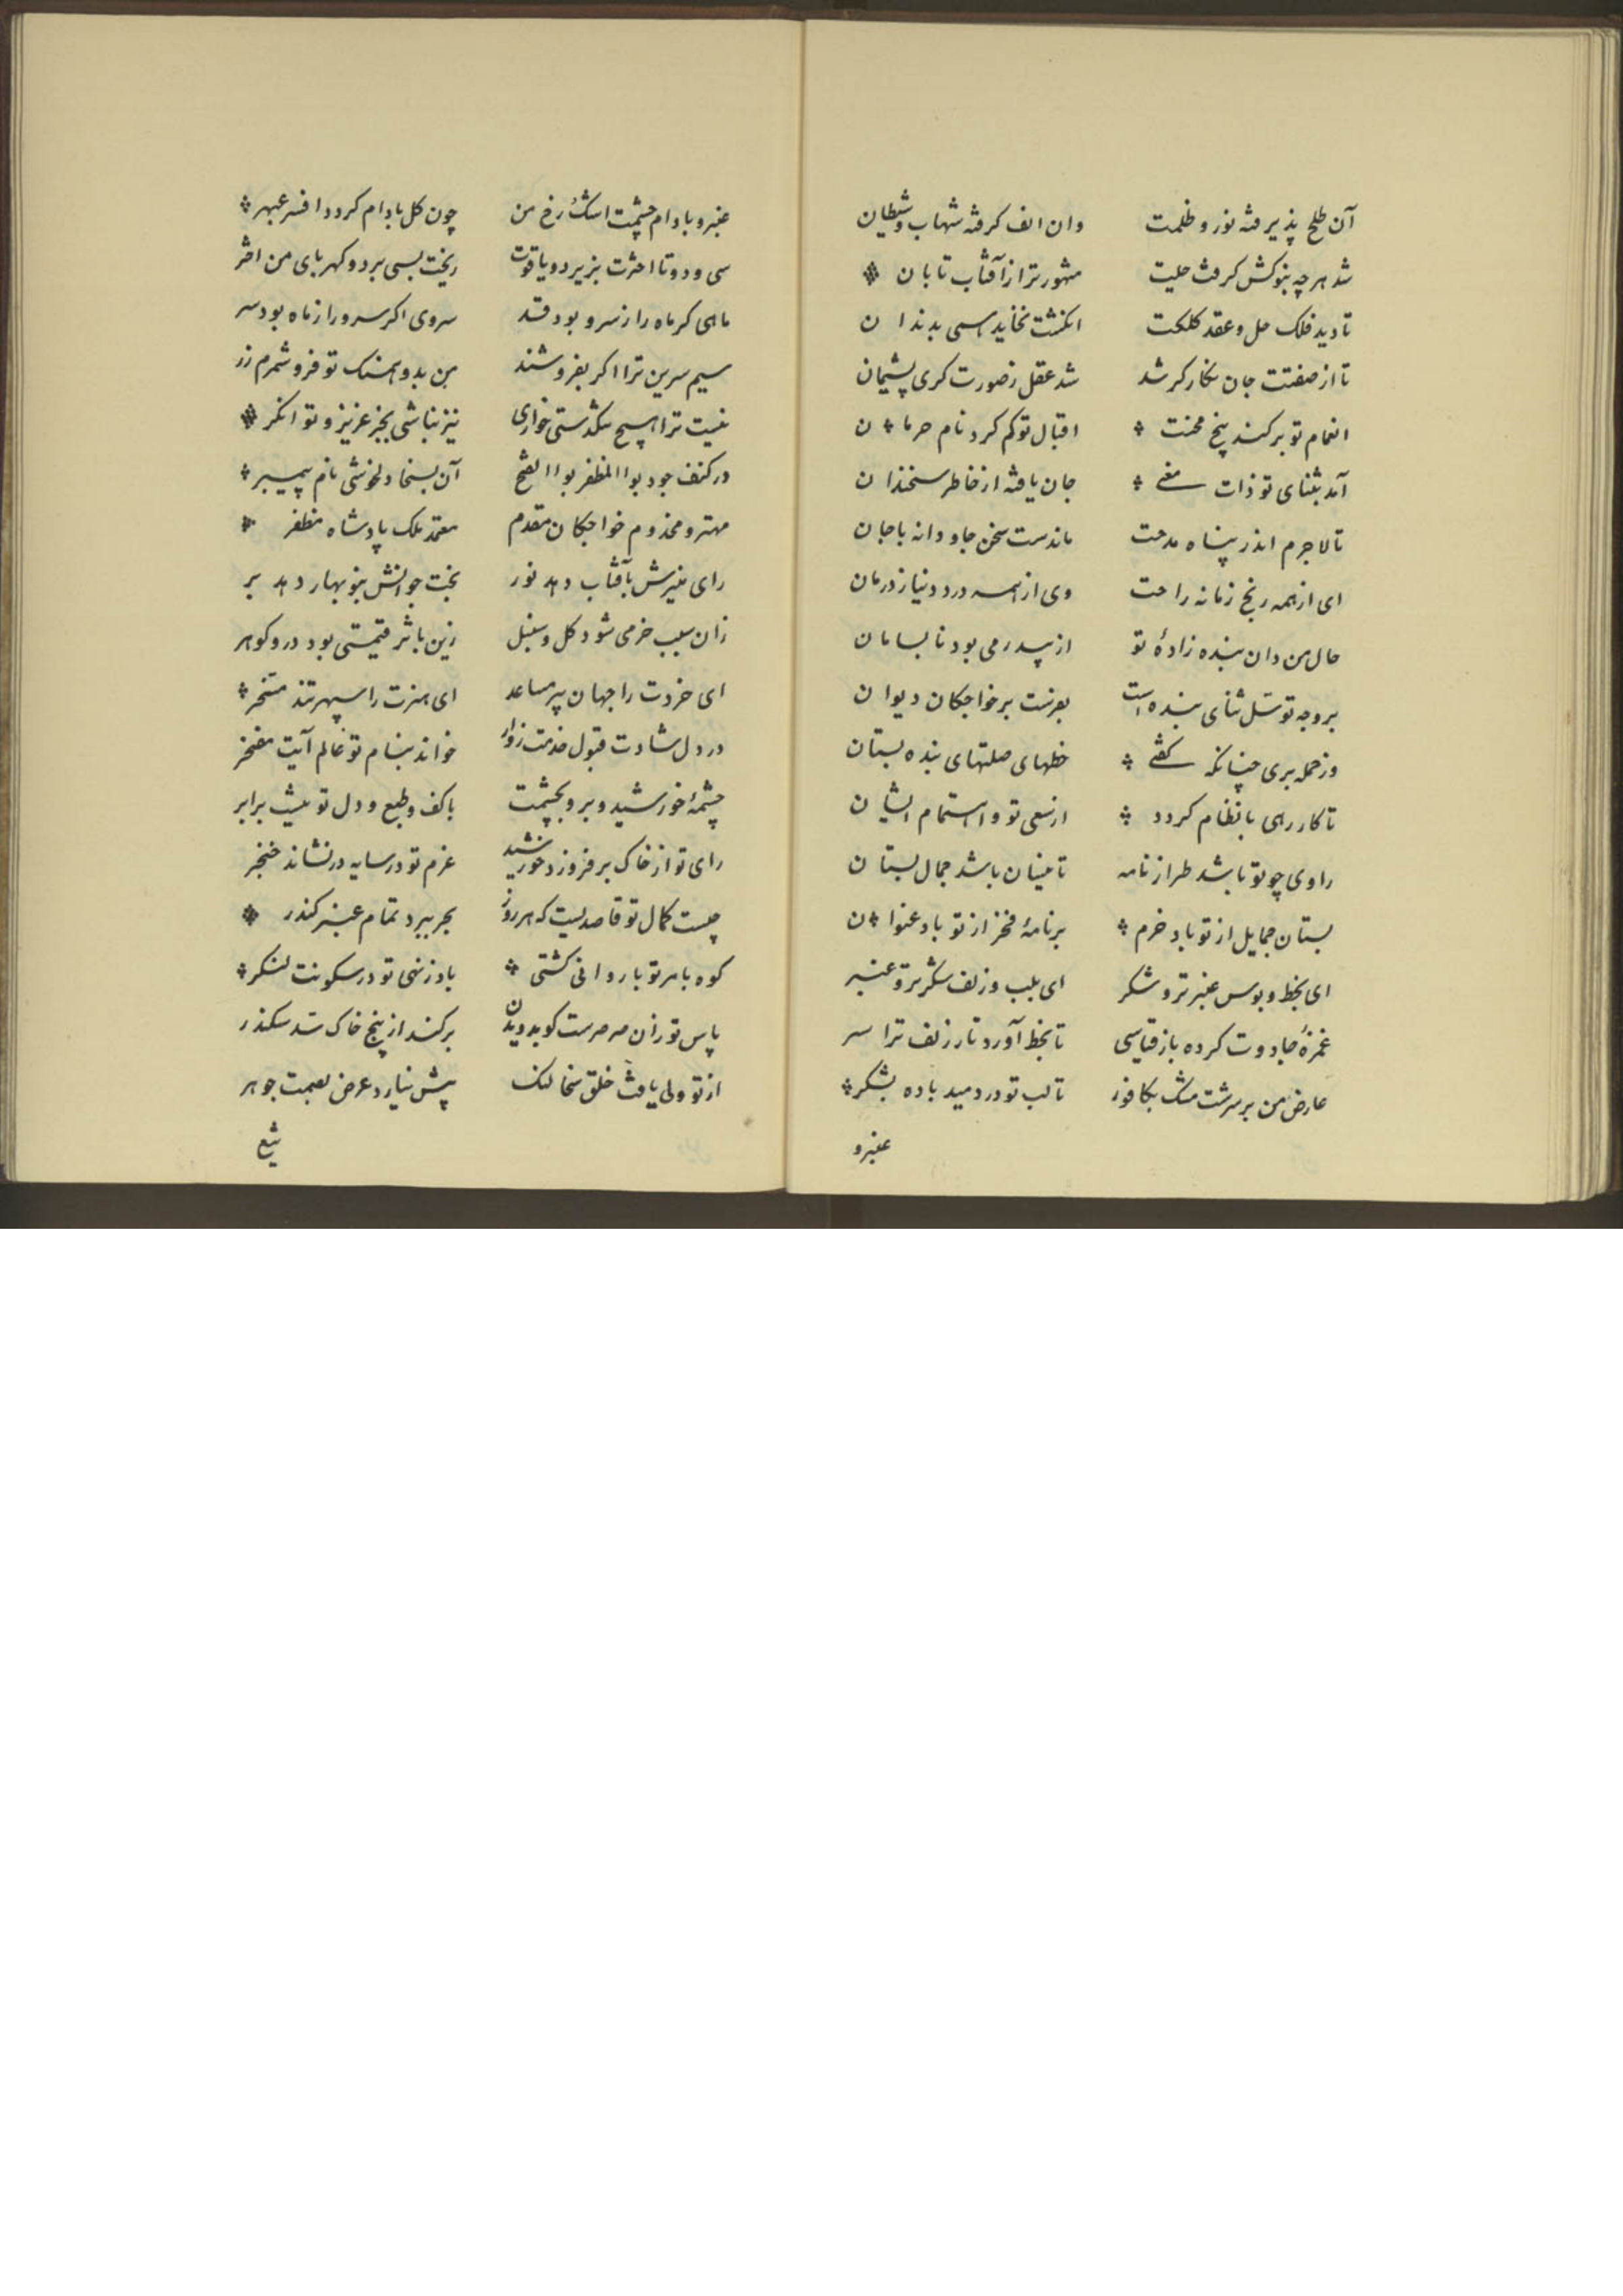 آن طلح پذیرفته نور و ظلمت وان الف کرفته شهاب و شیطان
شد هر چه بنوکش کرفت حلیت مشهورتر از آفتاب تابان
تا دید فلک حل و عقد کلکت انکشت نخاید همی بدندان
تا از صفتت جان نکارکر شد شد عقل ز صورت کری پشیمان
انعام تو برکند بیخ محنت اقبال تو کم کرد نام حرمان
آمد بثنای تو ذات معنی جان یافته از خاطر سخندان
تا لاجرم اندر پناه مدحت ماندست سخن جاودانه با جان
ای از همه رنج زمانه راحت وی از همه درد و نیاز درمان
حال من دان بنده زادهٔ تو از پدر می بود نابسامان
بر وجه توسل ثنای بنده است بفرست بر خواجکان دیوان
وز جمله بری چنانکه کفتی خطهای صلتهای بنده بستان
تا کار رهی با نظام کردد از سعی تو و اهتمام ایشان
راوی چو تو باشد طراز نامه تا بنیان باشد جمال بستان
بستان جمایل از تو باد خرم بر نامهٔ فخر از تو باد عنوان
ای بخط و بوس عنبر تر و شکر ای بلب و زلف شکر تر و عنبر
غمزهٔ جادوت کرده باز قیاسی تا بخط آورد تار زلف ترا سر
عارض من بر سرشت مشک بکافور تا لب تو در دمید باده بشکر
عنبر و
عنبر و بادام چشمت اشک رخ من چون کل بادام کردد افسر عبهر
سی و دو تا اخترت بزیر دو یاقوت ریخت بسی بر دو کهربای من اختر
ماهی کر ماه را ز سرو بود قد سروی اکر سرو را ز ماه بود سر
سیم سرین ترا اکر بفروشند من بدو همسنک تو فروشمرم زر
نیست ترا هیچ تنکدستی و خواری نیز نباشی بجز عزیز و توانکر
در کنف جود بوالمظفر بوالفتح آن بسخا و بخوشی نام پیمبر
مهتر و مخدوم خواجکان مقدم معتمد ملک پادشاه مظفر
رای منیرش بآفتاب دهد نور بخت جوانش بنوبهار دهد بر
زان سبب خرمی شود کل و سنبل زین باثر قیمتی بود در و کوهر
ای خردت را جهان پیر مساعد ای هنرت را سپهر تند مسخر
در دل شادت قبول خدمت زوار خواند بنام تو عالم آیت مفخر
چشمهٔ خورشید و بر و بچشمت با کف و طبع و دل تو نیست برابر
رای تو از خاک بر فروزد خورشید عزم تو در سایه در نشاند خنجر
چیست کمال تو قاصدیست که هر روز
کوه بامر تو باروانی کشتی باد ز نهی تو در سکونت لنکر
پاس تو زان صرصرست کو بدویدن برکند از بیخ خاک سد سکندر
از تو ولی یافت خلق سخا لنک پیش نیارد عرض بعصمت جوهر
تیغ